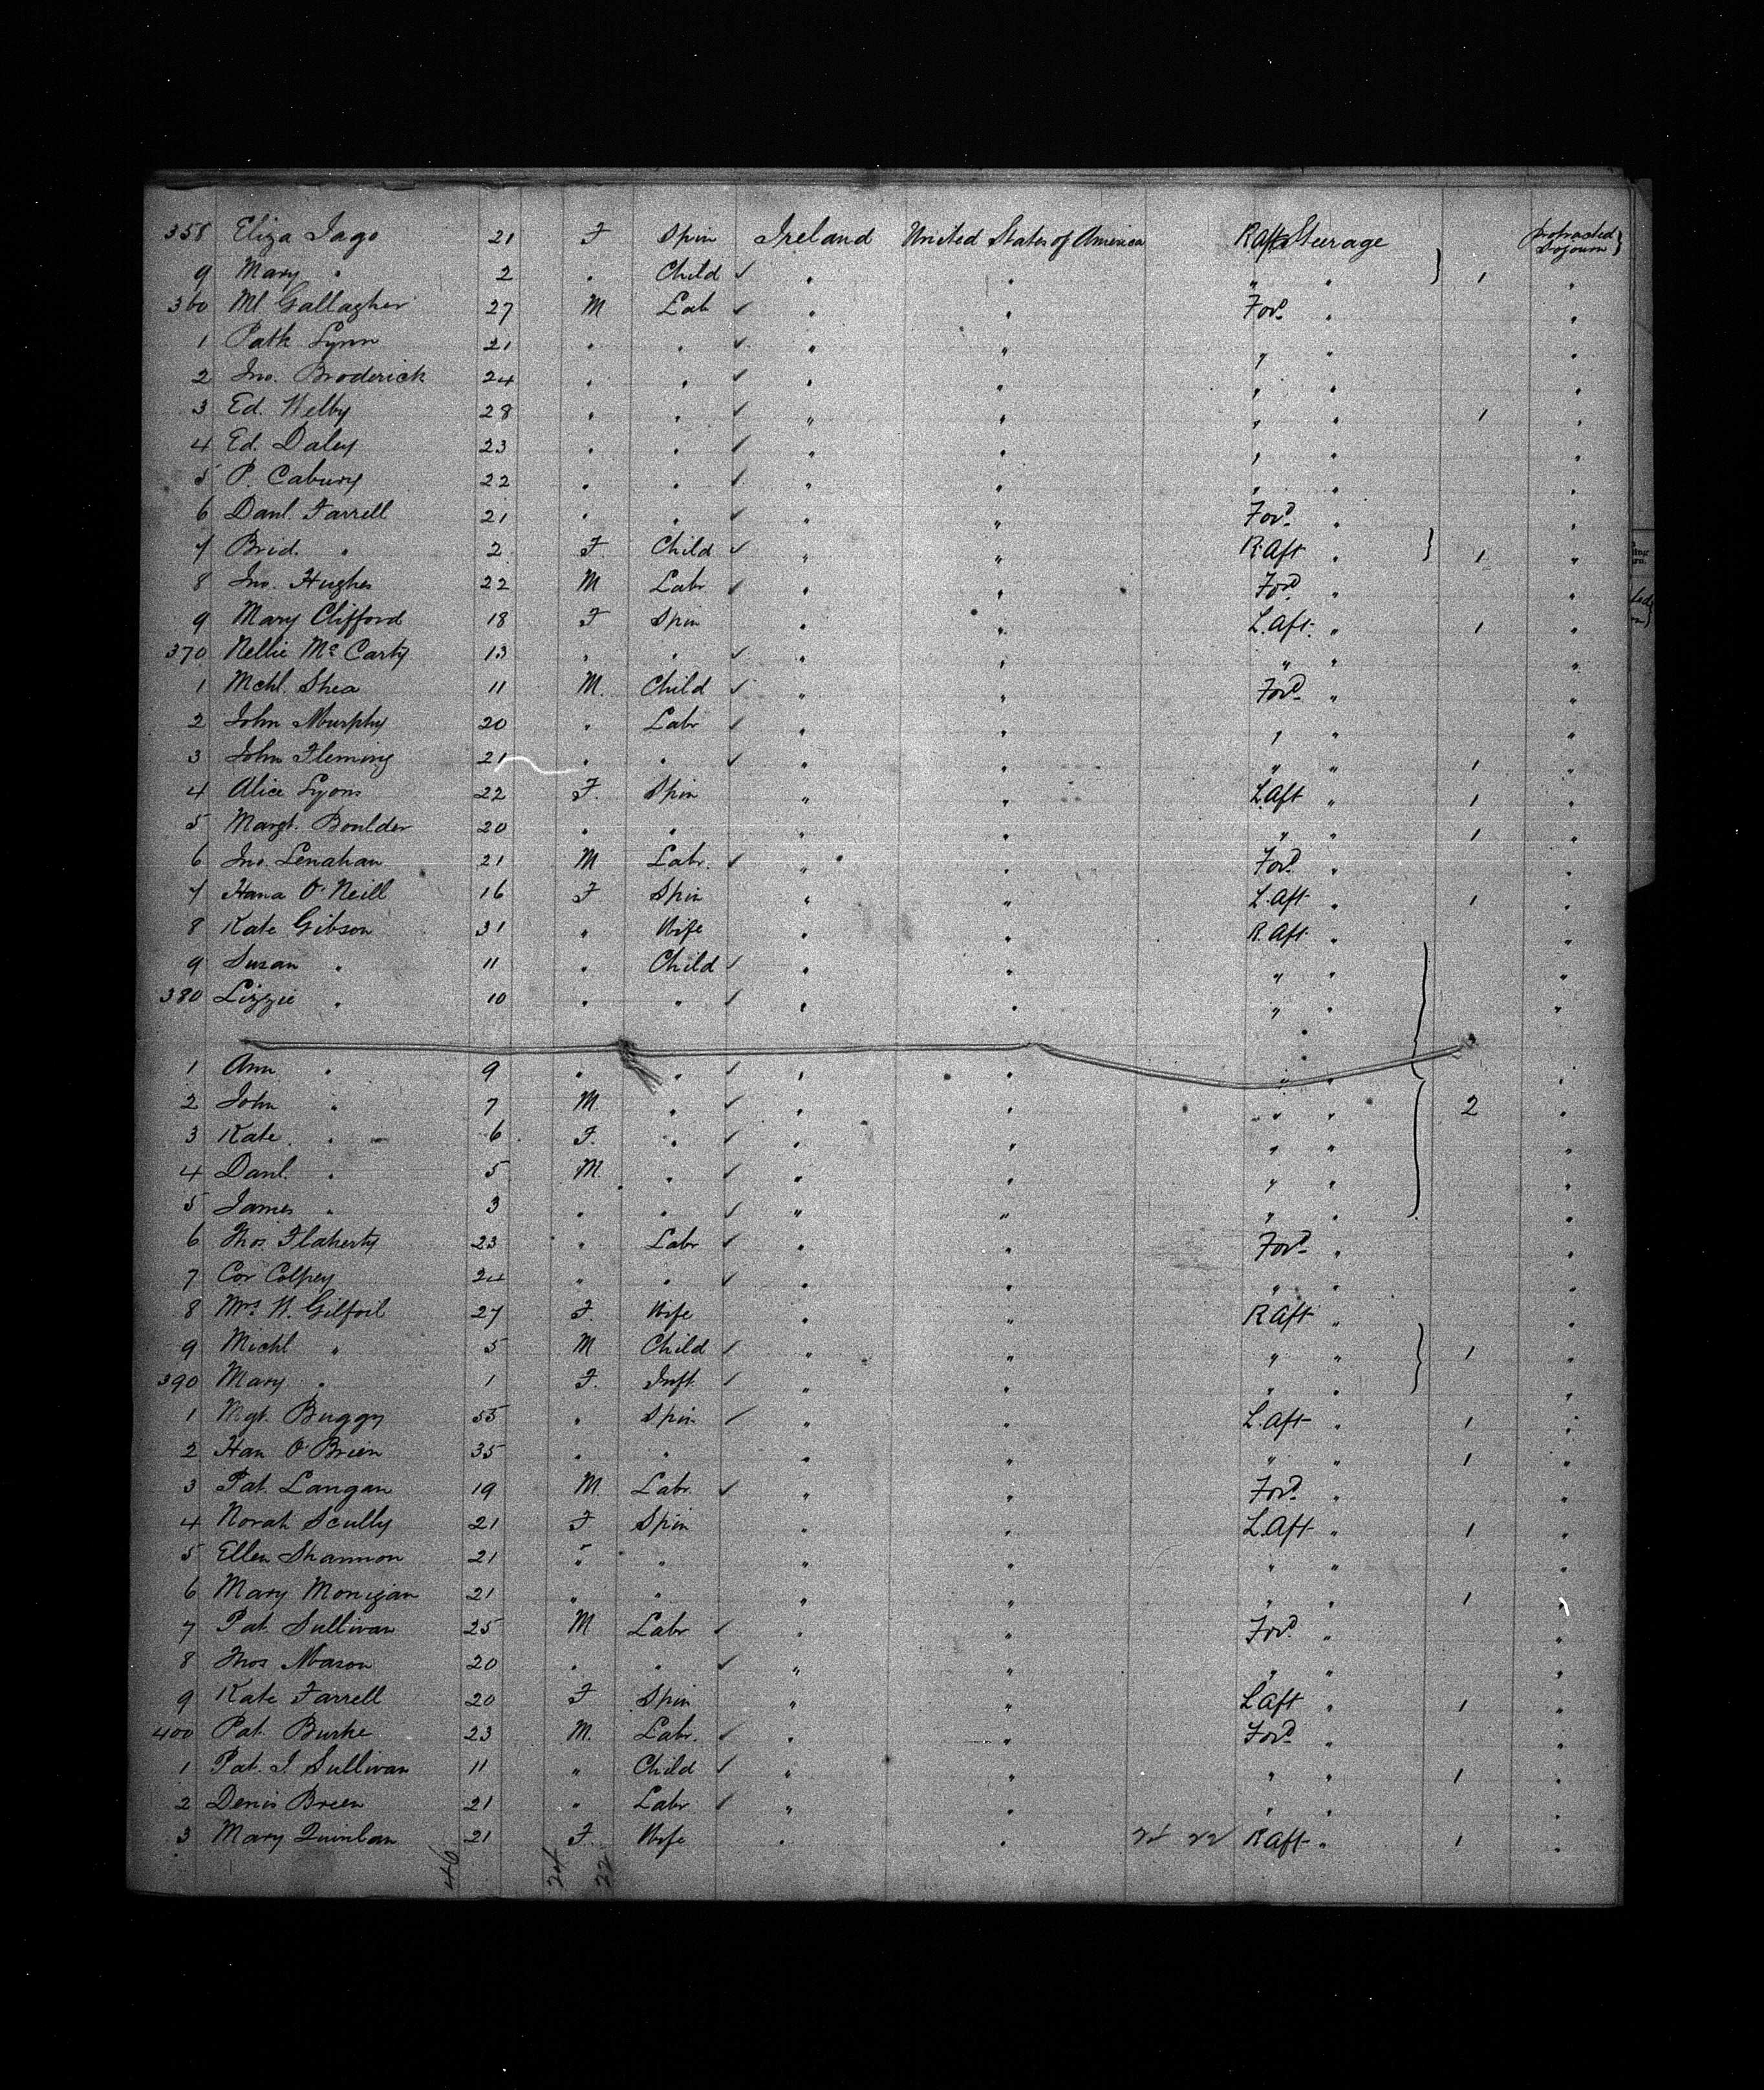 358 Eliza Jago 21 F Spin Ireland United States of America R Aft Steerage protracted
sojourn }
9 Mary " 2 " Child ✓ " " " " } 1 "
360 Ml Gallagher 27 M Lab ✓ " " Ford "  "
1 Patk Lynn 21 " " ✓ " " " " "
2 Jno. Broderick 24 " " ✓ " " " " "
3 Ed. Welby 28 " " ✓ " " " " 1 "
4 Ed. Daley 23 " " ✓ " " " " "
5 P. Cabury 22 " " ✓ " " " " "
6 Danl. Farrell 21 " " ✓ " " Ford " "
7 Brid. " 2 F. Child ✓ " " R. Aft " } 1 "
8 Jno. Hughes 22 M Labr ✓ " " Ford " "
9 Mary Clifford 18 F Spin " " L. Aft. " 1 "
370 Nellie Mc Carty 13 " " ✓ " " " " "
1 Mchl. Shea 11 M. Child ✓ " " Ford " "
2 John Murphy 20 " Labr ✓ " " " " "
3 John Fleming 21 " " ✓ " " " " 1 "
4 Alice Lyons 22 F. Spin " " L. Aft " 1 "
5 Margt. Boulder 20 " " " " " " 1 "
6 Jno. Lenahan 21 M Labr. ✓ " " Ford " "
7 Hana O'Neill 16 F Spin " " L. Aft " 1 "
8 Kate Gibson 31 " Wife " " R. Aft " "
9 Susan " 11 " Child ✓ " " " " "
380 Lizzie " 10 " " ✓ " " " " "
1 Ann " 9 " " ✓ " " " " "
2 John " 7 M " ✓ " " " " 2 "
3 Kate " 6 F. " ✓ " " " " "
4 Danl. " 5 M. " ✓ " " " " "
5 James " 3 " " ✓ " " " " "
6 Thos. Flaherty 23 " Labr ✓ " " Ford " "
7 Cor Colpey 24 " " ✓ " " " " "
8 Mrs W. Gilfoil 27 F. Wife " " R Aft " "
9 Michl " 5 M Child ✓ " " " " } 1 "
390 Mary " 1 F. Inft. ✓ " " " " "
1 Mgt. Buggy 55 " Spin ✓ " " L. Aft " 1 "
2 Han O'Brien 35 " " " " " " 1 "
3 Pat. Langan 19 M. Labr. ✓ " " Ford " "
4 Norah Scully 21 F Spin " " L. Aft " 1 "
5 Ellen Shannon 21 " " " " " " "
6 Mary Monigan 21 " " " " " " 1 "
7 Pat Sullivan 25 M Labr ✓ " " Ford " "
8 Thos Mason 20 " " ✓ " " " " "
9 Kate Farrell 20 F Spin " " L Aft " 1 "
400 Pat. Burke 23 M. Labr. ✓ " " Ford " "
1 Pat. J. Sullivan 11 " Child ✓ " " " " 1 "
2 Denis Breen 21 " Labr ✓ " " " " "
3 Mary Quinlan 21 F. Wife " " 24 22 R Aft " 1 "
46 24 22